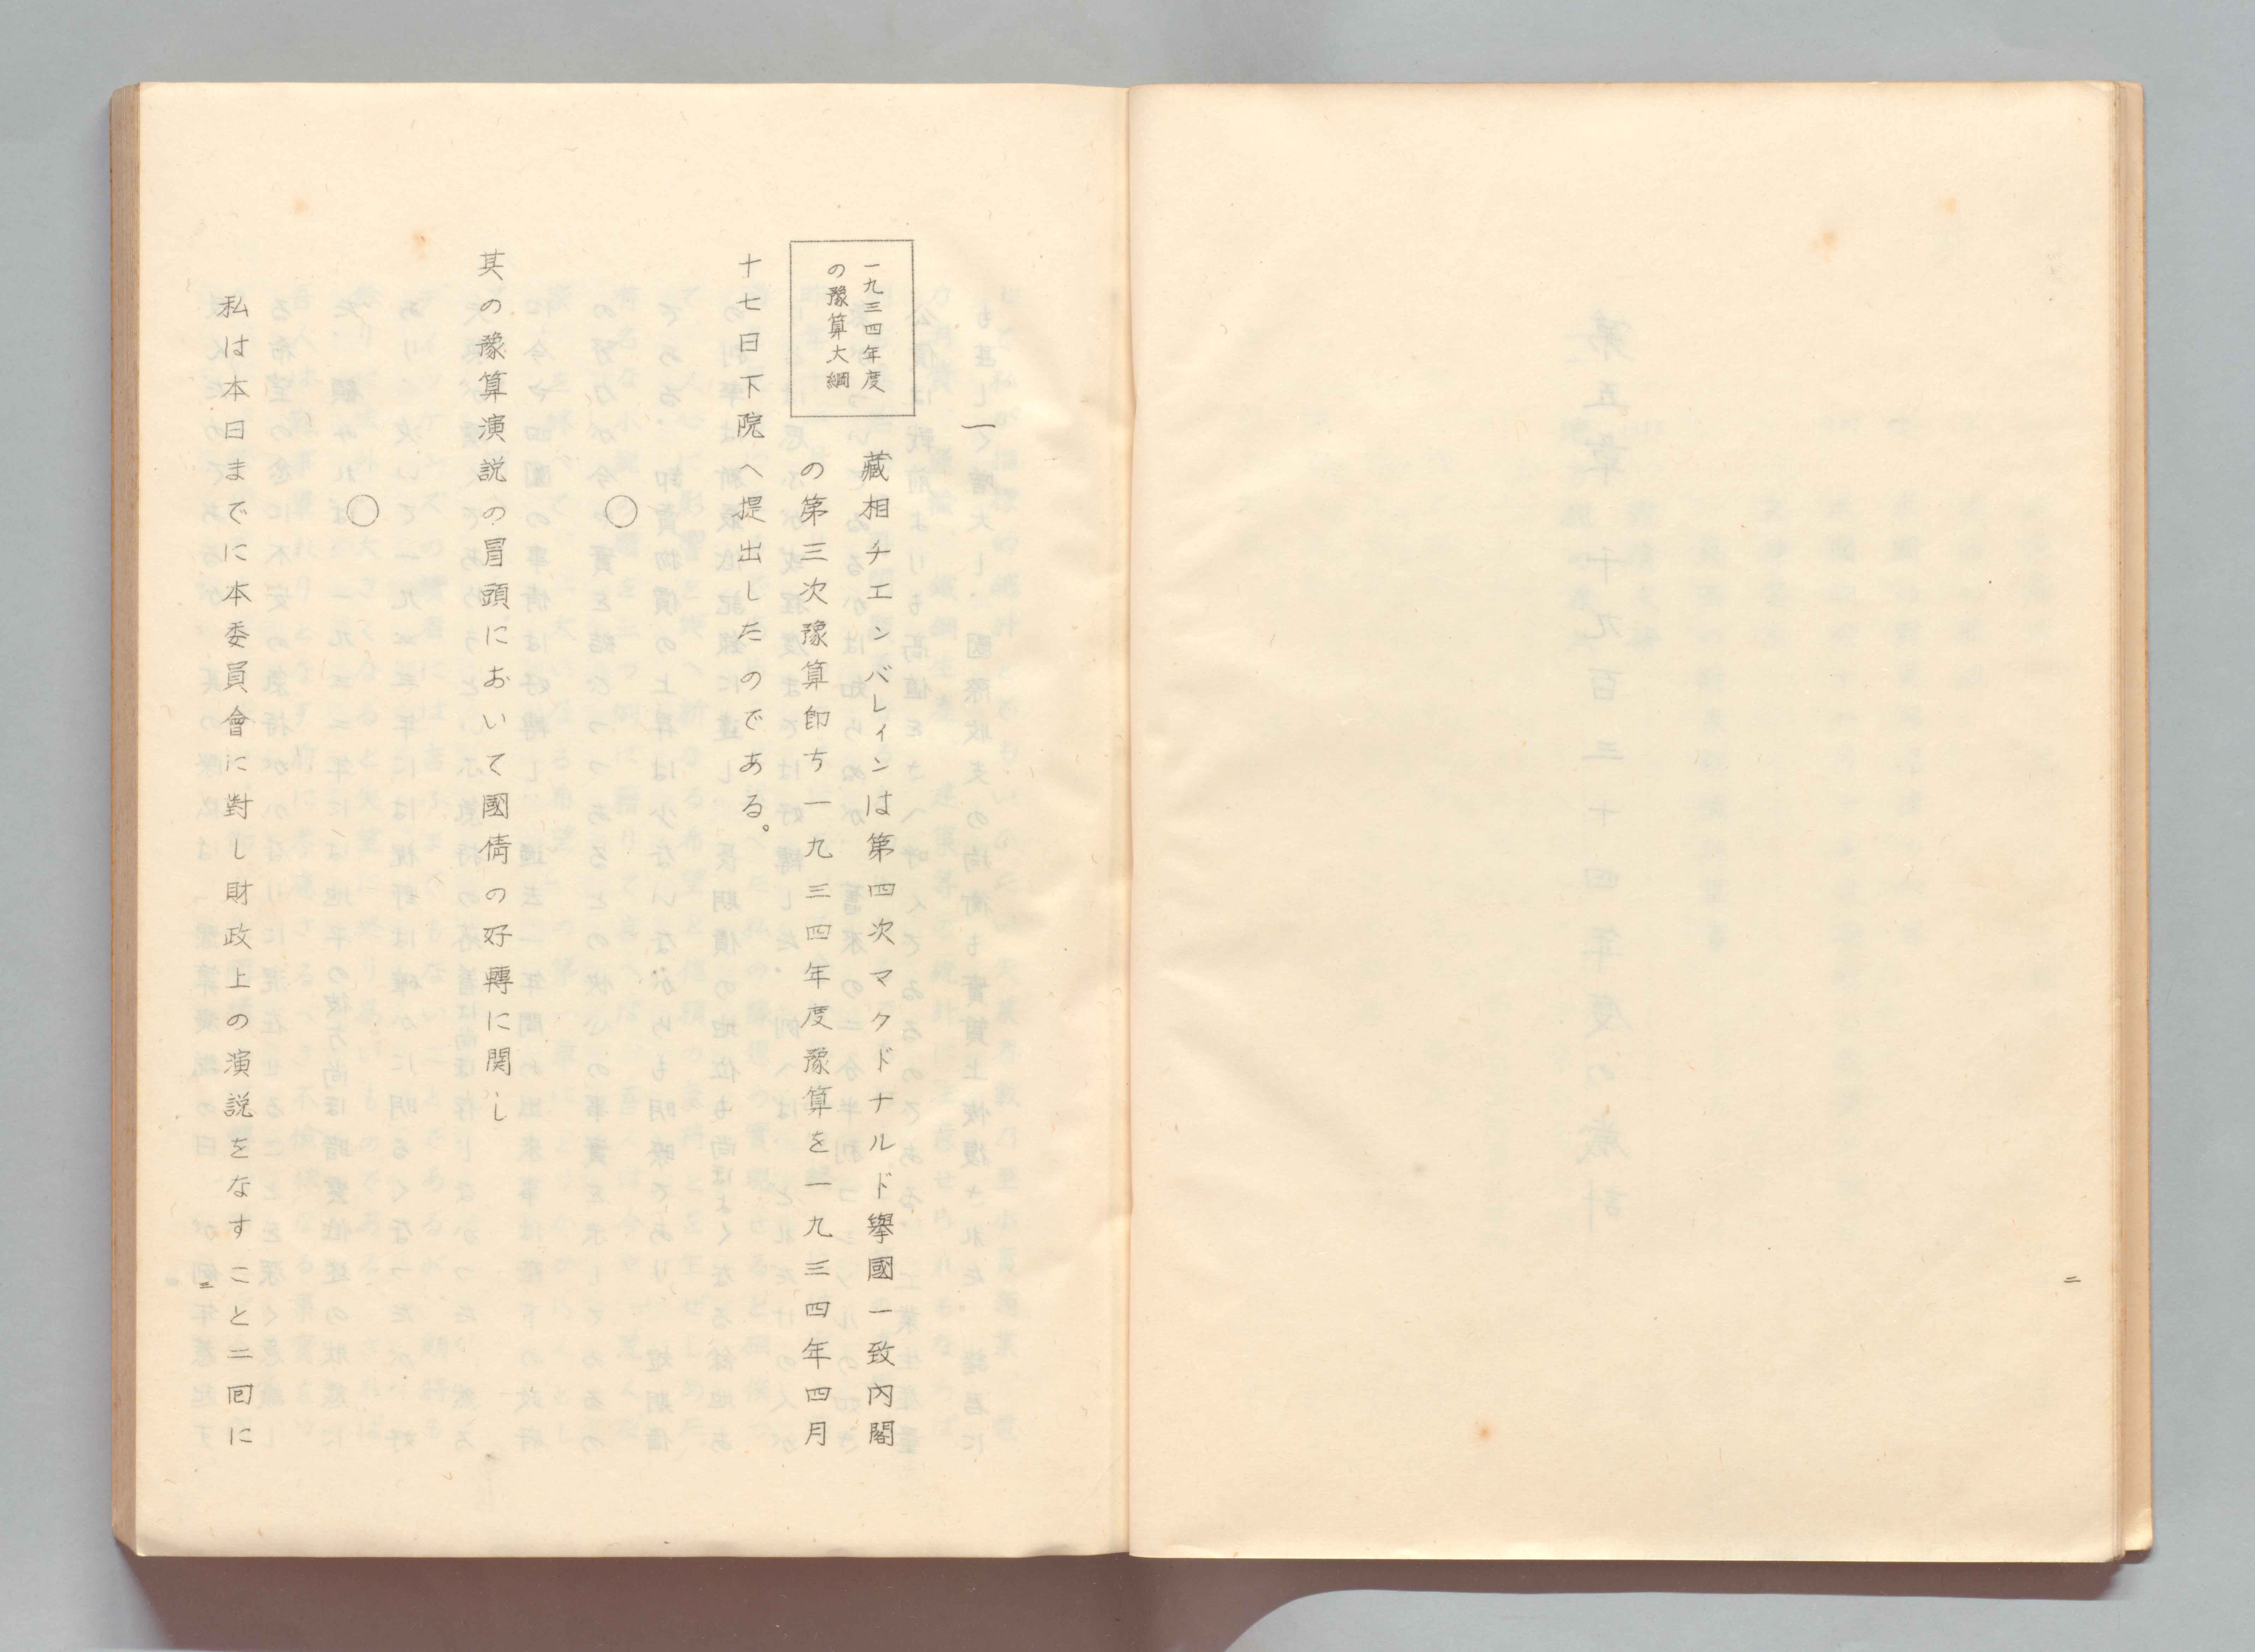 二
一
一九三四年度
の豫算大綱
藏相チエンバレインは第四次マクドナルド擧國一致内閣
の第三次豫算卽ち一九三四年度豫算を一九三四年四月
十七日下院へ提出したのである。
○
其の豫算演説の冒頭において國情の好轉に関し
○
私は本日までに本委員會に對し財政上の演説をなすこと二回に
三